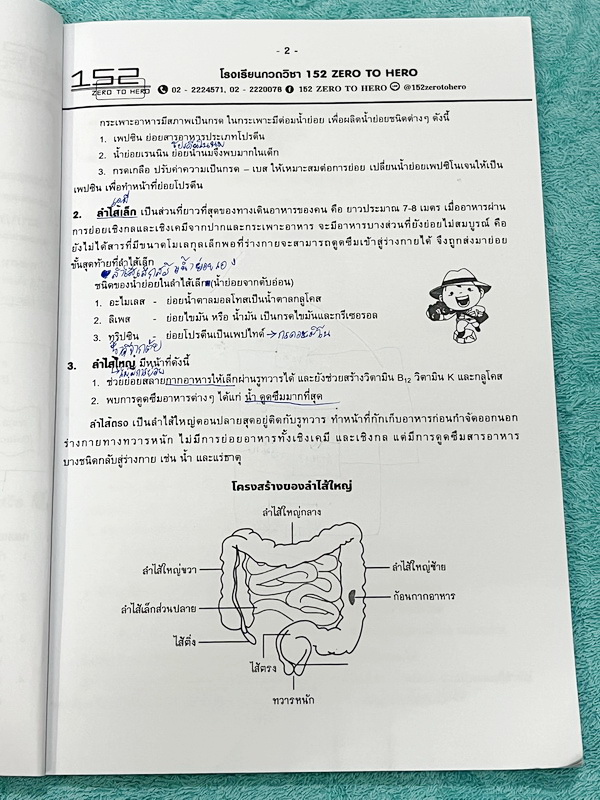 - 2 -
152
ZERO TO HERO
โรงเรียนกวดวิชา 152 ZERO TO HERO
02 - 2224571, 02 - 2220078 152 ZERO TO HERO @152zerotohero
กระเพาะอาหารมีสภาพเป็นกรด ในกระเพาะมีต่อมน้ำย่อย เพื่อผลิตน้ำย่อยชนิดต่างๆ ดังนี้
1. เพปซิน ย่อยสารอาหารประเภทโปรตีน
2. น้ำย่อยเรนนิน ย่อยน้ำนมจึงพบมากในเด็ก
3. กรดเกลือ ปรับค่าความเป็นกรด – เบส ให้เหมาะสมต่อการย่อย เปลี่ยนน้ำย่อยเพปซิโนเจนให้เป็น
เพปซิน เพื่อทำหน้าที่ย่อยโปรตีน
2. ลำไส้เล็ก เป็นส่วนที่ยาวที่สุดของทางเดินอาหารของคน คือ ยาวประมาณ 7-8 เมตร เมื่ออาหารผ่าน
การย่อยเชิงกลและเชิงเคมีจากปากและกระเพาะอาหาร จะมีอาหารบางส่วนที่ยังย่อยไม่สมบูรณ์ คือ
ยังไม่ได้สารที่มีขนาดโมเลกุลเล็กพอที่ร่างกายจะสามารถดูดซึมเข้าสู่ร่างกายได้ จึงถูกส่งมาย่อย
ขั้นสุดท้ายที่ลำไส้เล็ก
ชนิดของน้ำย่อยในลำไส้เล็ก (น้ำย่อยจากตับอ่อน)
1. อะไมเลส - ย่อยน้ำตาลมอลโทสเป็นน้ำตาลกลูโคส
2. ลิเพส - ย่อยไขมัน หรือ น้ำมัน เป็นกรดไขมันและกรีเซอรอล
3. ทริปซิน - ย่อยโปรตีนเป็นเพปไทด์ → กรดอะมิโน
3. ลำไส้ใหญ่ มีหน้าที่ดังนี้
1. ช่วยย่อยสลายกากอาหารให้เล็กผ่านรูทวารได้ และยังช่วยสร้างวิตามิน B12 วิตามิน K และกลูโคส
2. พบการดูดซึมอาหารต่างๆ ได้แก่ น้ำ ดูดซึมมากที่สุด
ลำไส้ตรง เป็นลำไส้ใหญ่ตอนปลายสุดอยู่ติดกับรูทวาร ทำหน้าที่กักเก็บอาหารก่อนกำจัดออกนอก
ร่างกายทางทวารหนัก ไม่มีการย่อยอาหารทั้งเชิงเคมี และเชิงกล แต่มีการดูดซึมสารอาหาร
บางชนิดกลับสู่ร่างกาย เช่น น้ำ และแร่ธาตุ
โครงสร้างของลำไส้ใหญ่
ลำไส้ใหญ่กลาง
ลำไส้ใหญ่ขวา
ลำไส้ใหญ่ซ้าย
ก้อนกากอาหาร
ลำไส้เล็กส่วนปลาย
ไส้ติ่ง
ไส้ตรง
ทวารหนัก